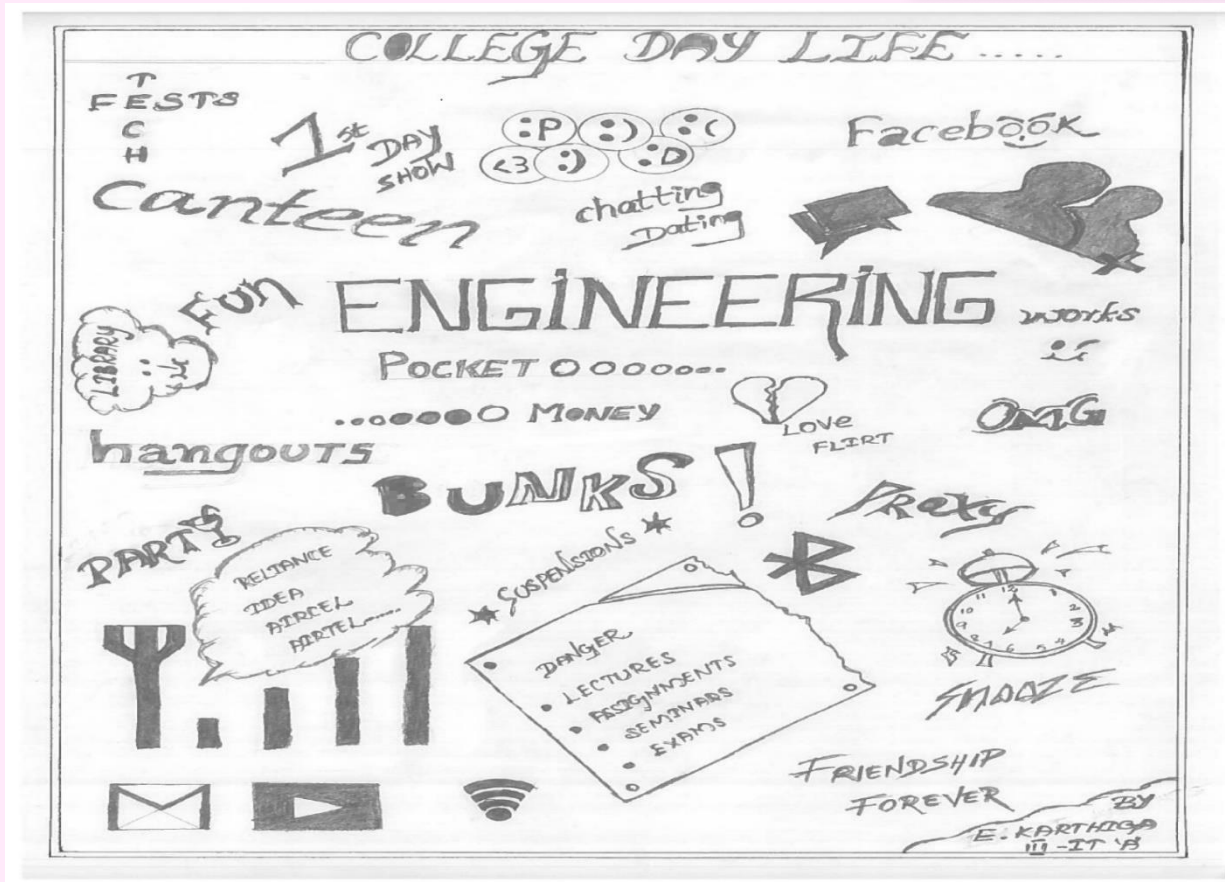 COLLEGE DAY LIFE.....
T
FESTS
C
H
1st DAY
SHOW
:P :) :(
<3 :) :D
Facebook
canteen
chatting
Dating
FUN
LIBRARY
ENGINEERING
works
POCKET OOoooo...
...ooooO MONEY
LOVE
FLIRT
OMG
hangouts
BUNKS!
PROXY
PARTY
RELIANCE
IDEA
AIRCEL
AIRTEL.....
* SUSPENSIONS *
DANGER
• LECTURES
• ASSIGNMENTS
• SEMINARS
• EXAMS
SNOOZE
FRIENDSHIP
FOREVER
BY
E. KARTHIGA
III -IT 'B'